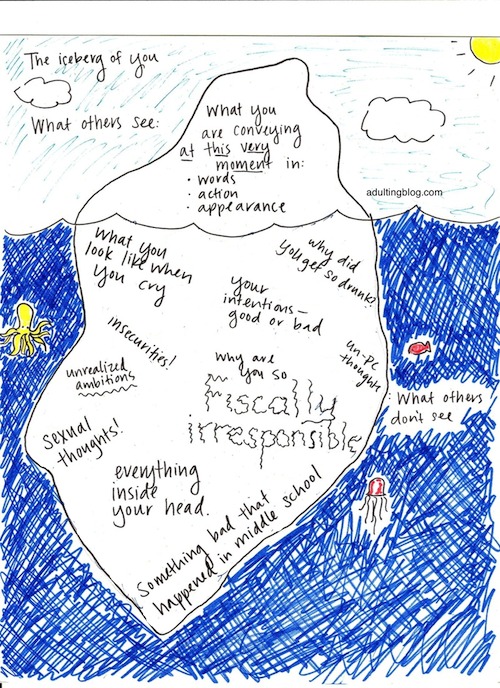 The iceberg of you
What others see:
What you
are conveying
at this very
moment in:
• words
• action
• appearance
adultingblog.com
What you
look like when
you cry
why did
you get so drunk?
your
intentions—
good or bad
insecurities!
un-PC
thoughts
unrealized
ambitions
why are
you so
fiscally
irresponsible
: What others
don't see
sexual
thoughts!
everything
inside
your head.
Something bad that
happened in middle school